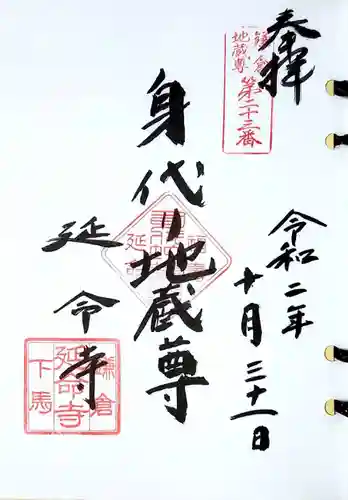 奉拝
鎌倉
地蔵尊
第二十三番
令和二年
十月三十一日
身代り地蔵尊
延令寺
鎌倉
延命寺
下馬